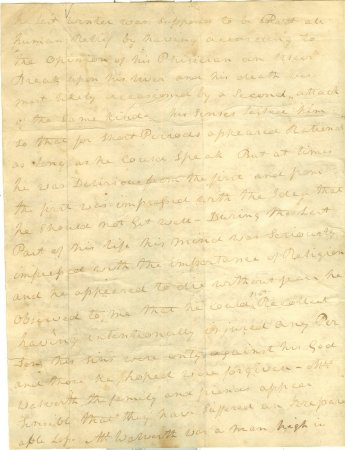 he last winter was supposed to be Past all
human relief by having according to
the Opinion of his Physician an Ulcer
break upon his liver and his death was
most likely occasioned by a Second attack
of the same kind his senses lasted him
so that for short Periods appeared Rational
as long as he could Speak But at times
he was Delirious from the first and from
the first was impressed with the Idea that
he should not get well - During the last
Part of his life his mind was Seriously
impressed with the importance of Religion
and he appeared to die without fear he
Observed to me that he could not Recollect
having intentionally injured any Per
son his sins were only against his God
and those he hoped were forgiven - Mr
Walworth the family and friends appear
sensible that they have suffered an Irepar
able Loss Mr Walworth was a man high in